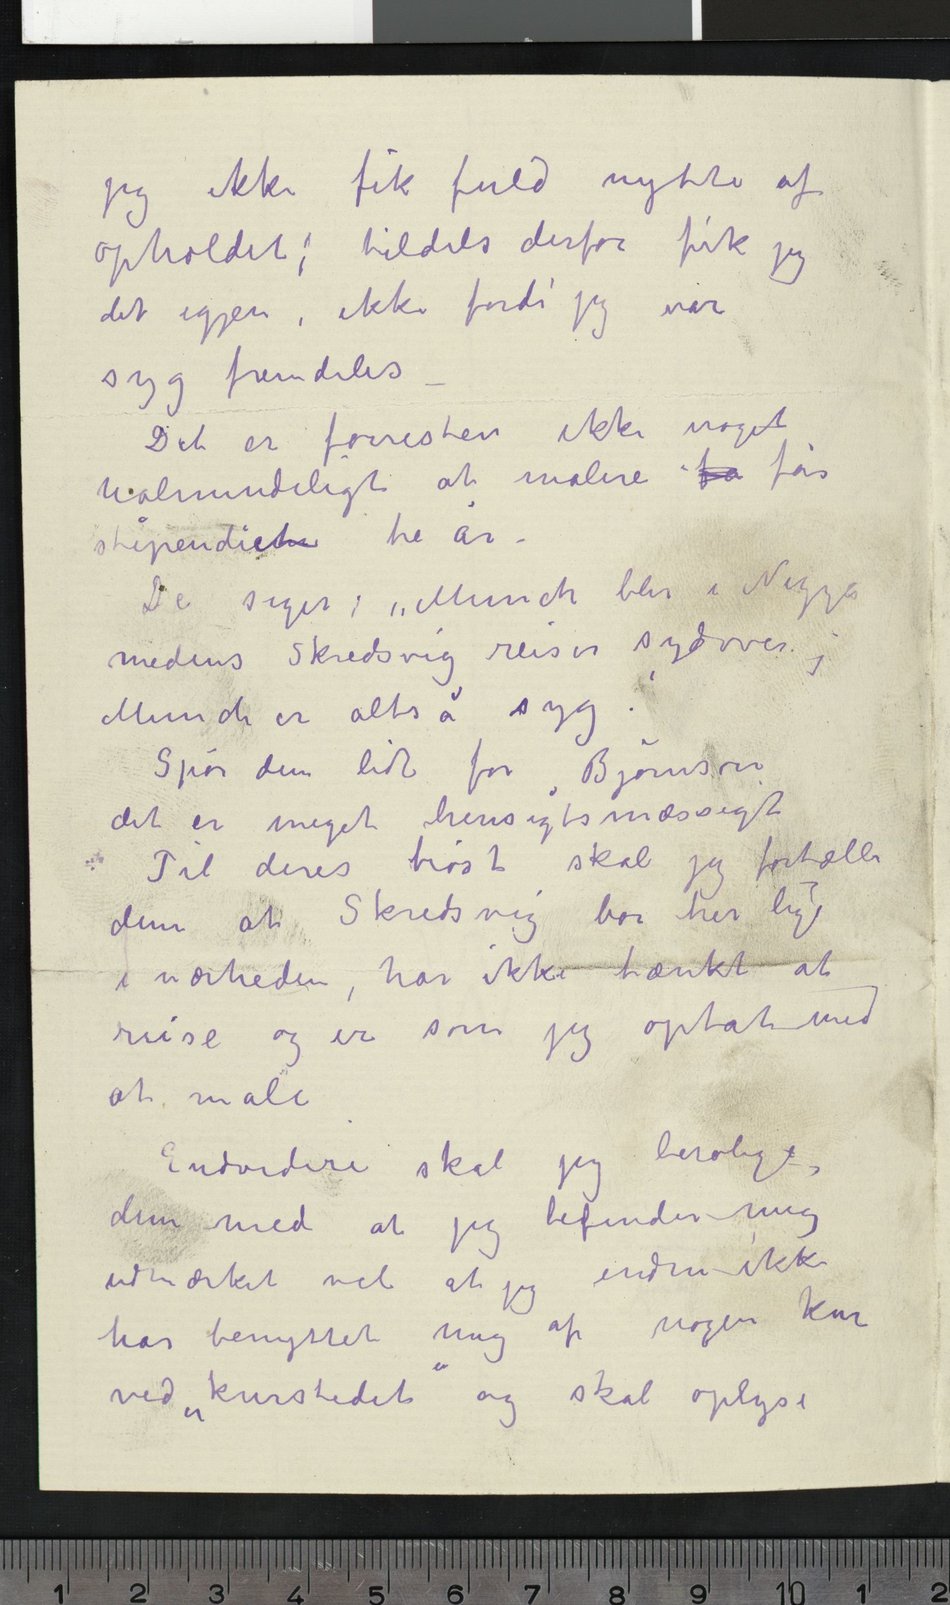 jeg ikke fik fuld nytte af
opholdet; tildels derfor fik jeg
det igjen, ikke fordi jeg var
syg fremdeles –
Det er forresten ikke noget
ualmindeligt at malere fa fås
stipendiet tre år –
De siger: „Munch blir i Nizza
medens Skredsvig reiser sydover;
Munch er altså syg.
Spør dem lidt for Bjørnson
det er meget hensigtsmæssigt
Til deres trøst skal jeg fortælle
dem at Skredsvig bor her lige
i nærheden, har ikke tænkt at
reise og er som jeg optat med
at male
Endvidere skal jeg berolige
dem med at jeg befinder mig
udmærket vel at jeg endnu ikke
har benyttet mig af nogen kur
ved „kurstedet“ og skal oplyse
1 2 3 4 5 6 7 8 9 10 1 2